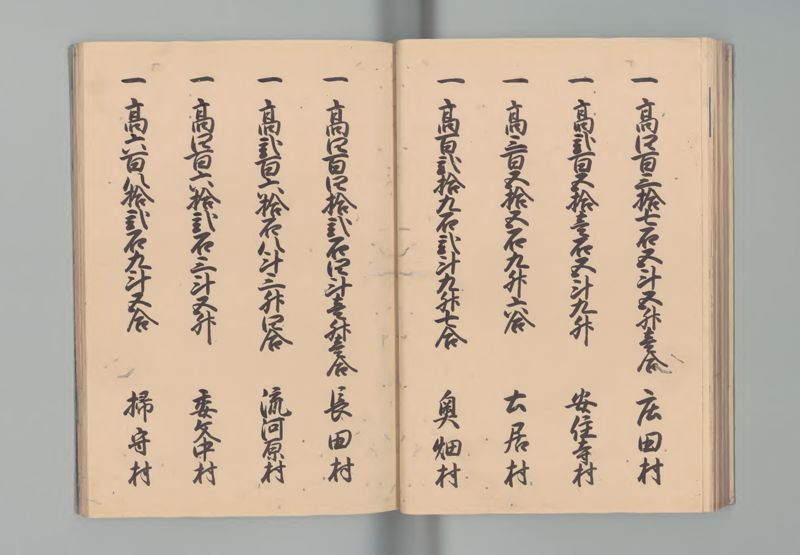 一 高四百三拾七石五斗五升壱合 庄田村
一 高弐百五拾壱石五斗九升 安住寺村
一 高三百五拾五石九升六合 土居村
一 高百弐拾九石弐斗九升七合 奥畑村
一 高四百四拾弐石四斗壱升壱合 長田村
一 高弐百六拾石八斗三升四合 流河原村
一 高四百六拾弐石三斗五升 委文中村
一 高六百八拾弐石九斗五合 掃守村